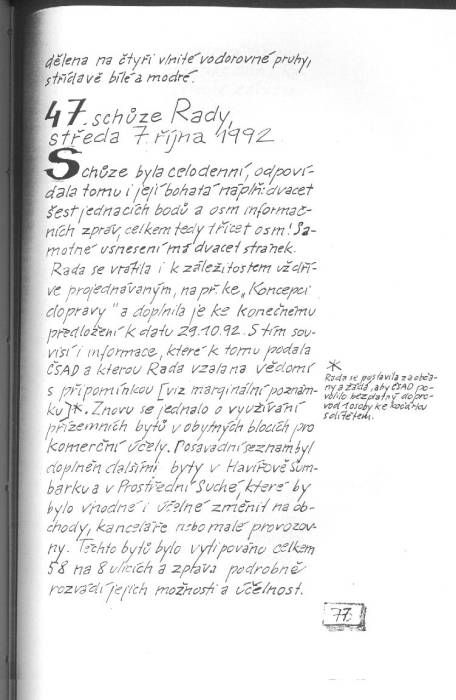 dělena na čtyři vlnité vodorovné pruhy,
střídavě bílé a modré.
47. schůze Rady,
středa 7. října 1992
Schůze byla celodenní, odpoví-
dala tomu i její bohatá náplň: dvacet
šest jednacích bodů a osm informač-
ních zpráv, celkem tedy třicet osm! Sa-
motné usnesení má dvacet stránek.
Rada se vrátila i k záležitostem vždří-
ve projednávaným, např. ke „Koncepci
dopravy" a doplnila je ke konečnému
předložení k datu 29.10.92. S tím sou-
visí i informace, které k tomu podala
ČSAD a kterou Rada vzala na vědomí
s připomínkou [viz marginální poznám-
ku]*. Znovu se jednalo o využívání
přízemních bytů v obytných blocích pro
komerční účely. Dosavadní seznam byl
doplněn dalšími byty v Havířově Šum-
barku a v Prostřední Suché, které by
bylo vhodné i účelné změnit na ob-
chody, kanceláře nebo malé provozov-
ny. Těchto bytů bylo vytipováno celkem
58 na 8 ulicích a zpráva podrobně
rozvádí jejich možnosti a účelnost.
*
Rada se postavila za obča-
ny a žádá, aby ČSAD po-
volilo bezplatný dopro-
vod 1 osoby ke kočárku
s dítětem.
77.